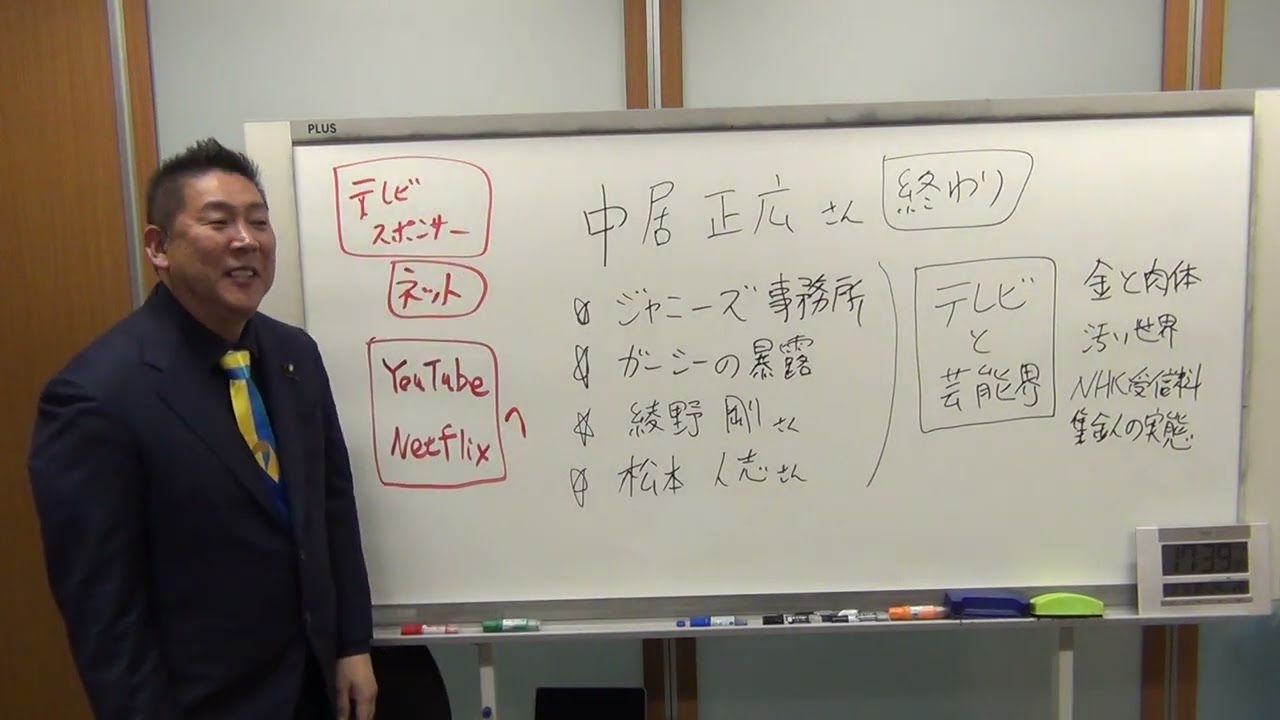 PLUS
テレビ
スポンサー
ネット
YouTube
Netflix
へ
中居 正広 さん
終わり
ジャニーズ事務所
ガーシーの暴露
綾野 剛 さん
松本 人志さん
テレビ
と
芸能界
金と肉体
汚い世界
NHK受信料
集金人の実態
17:39